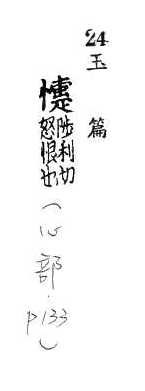 24
玉篇
懥
陟利切
怒恨也
(心部.
P133)